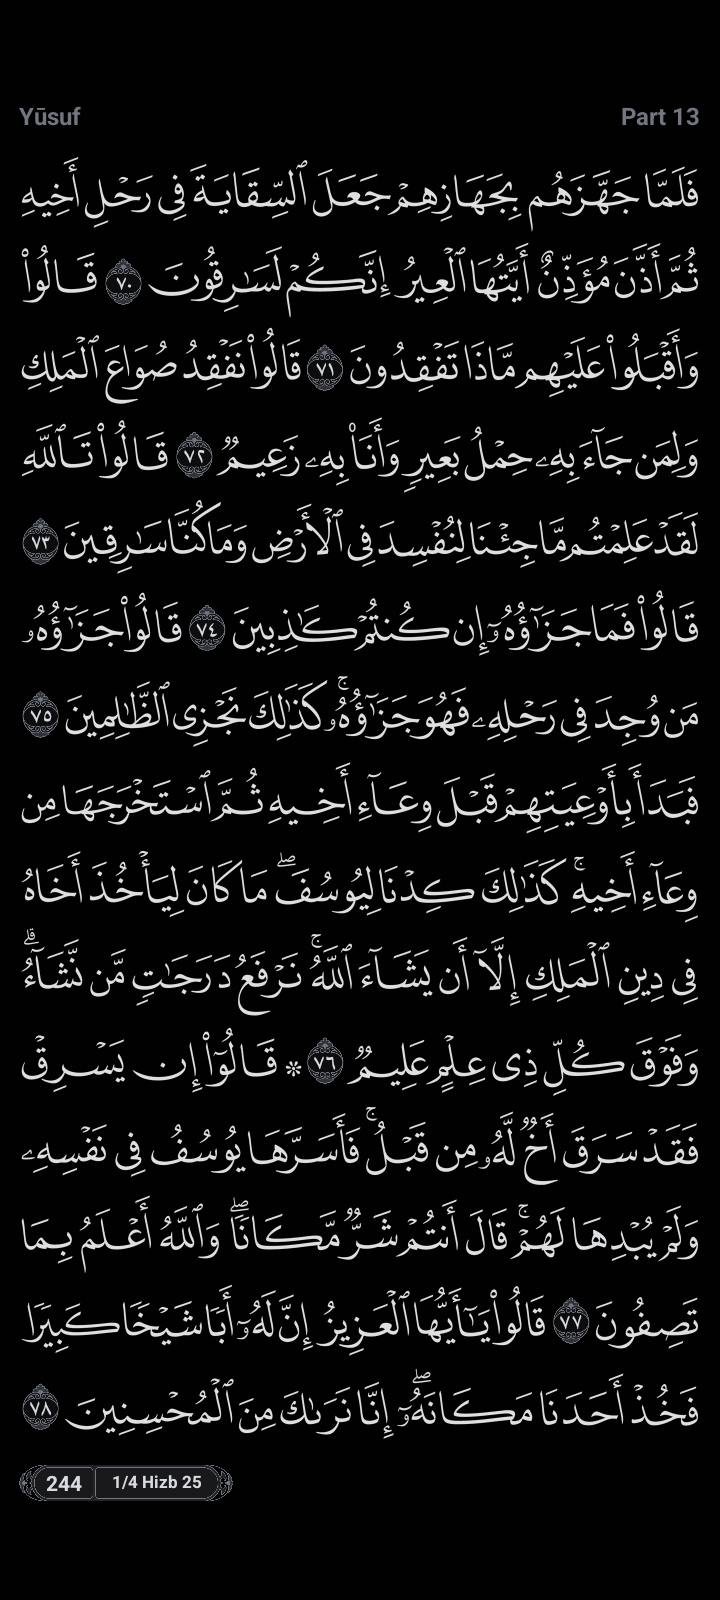 Yūsuf
Part 13
فَلَمَّا جَهَّزَهُم بِجَهَازِهِمْ جَعَلَ ٱلسِّقَايَةَ فِى رَحْلِ أَخِيهِ
ثُمَّ أَذَّنَ مُؤَذِّنٌ أَيَّتُهَا ٱلْعِيرُ إِنَّكُمْ لَسَـٰرِقُونَ ٧٠ قَالُوا۟
وَأَقْبَلُوا۟ عَلَيْهِم مَّاذَا تَفْقِدُونَ ٧١ قَالُوا۟ نَفْقِدُ صُوَاعَ ٱلْمَلِكِ
وَلِمَن جَآءَ بِهِۦ حِمْلُ بَعِيرٍ وَأَنَا۠ بِهِۦ زَعِيمٌ ٧٢ قَالُوا۟ تَٱللَّهِ
لَقَدْ عَلِمْتُم مَّا جِئْنَا لِنُفْسِدَ فِى ٱلْأَرْضِ وَمَا كُنَّا سَـٰرِقِينَ ٧٣
قَالُوا۟ فَمَا جَزَٰٓؤُهُۥٓ إِن كُنتُمْ كَـٰذِبِينَ ٧٤ قَالُوا۟ جَزَٰٓؤُهُۥ
مَن وُجِدَ فِى رَحْلِهِۦ فَهُوَ جَزَٰٓؤُهُۥ ۚ كَذَٰلِكَ نَجْزِى ٱلظَّـٰلِمِينَ ٧٥
فَبَدَأَ بِأَوْعِيَتِهِمْ قَبْلَ وِعَآءِ أَخِيهِ ثُمَّ ٱسْتَخْرَجَهَا مِن
وِعَآءِ أَخِيهِ ۚ كَذَٰلِكَ كِدْنَا لِيُوسُفَ ۖ مَا كَانَ لِيَأْخُذَ أَخَاهُ
فِى دِينِ ٱلْمَلِكِ إِلَّآ أَن يَشَآءَ ٱللَّهُ ۚ نَرْفَعُ دَرَجَـٰتٍ مَّن نَّشَآءُ ۗ
وَفَوْقَ كُلِّ ذِى عِلْمٍ عَلِيمٌ ٧٦ * قَالُوٓا۟ إِن يَسْرِقْ
فَقَدْ سَرَقَ أَخٌ لَّهُۥ مِن قَبْلُ ۚ فَأَسَرَّهَا يُوسُفُ فِى نَفْسِهِۦ
وَلَمْ يُبْدِهَا لَهُمْ ۚ قَالَ أَنتُمْ شَرٌّ مَّكَانًا ۖ وَٱللَّهُ أَعْلَمُ بِمَا
تَصِفُونَ ٧٧ قَالُوا۟ يَـٰٓأَيُّهَا ٱلْعَزِيزُ إِنَّ لَهُۥٓ أَبًا شَيْخًا كَبِيرًا
فَخُذْ أَحَدَنَا مَكَانَهُۥٓ ۖ إِنَّا نَرَىٰكَ مِنَ ٱلْمُحْسِنِينَ ٧٨
244 1/4 Hizb 25